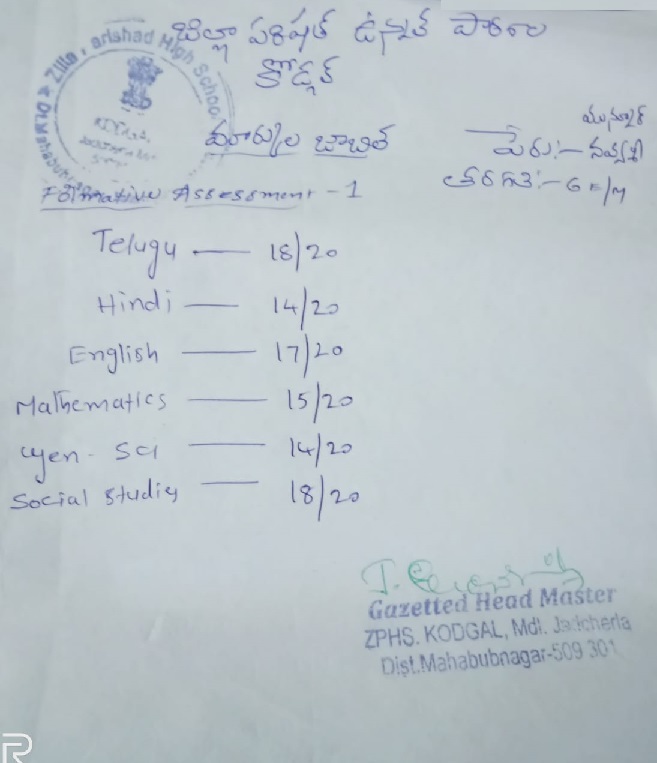 జిల్లా పరిషత్ ఉన్నత పాఠశాల
కోడ్గల్
Zilla Parishad High School
KODGAL
మార్కుల జాబిత
పేరు:- నవ్యశ్రీ
తరగతి:- 6 E/M
Formative Assessment - 1
Telugu — 18/20
Hindi — 14/20
English — 17/20
Mathematics — 15/20
Gen - Sci — 14/20
Social Studies — 18/20
Gazetted Head Master
ZPHS. KODGAL, Mdl. Jadcherla
Dist.Mahabubnagar-509 301